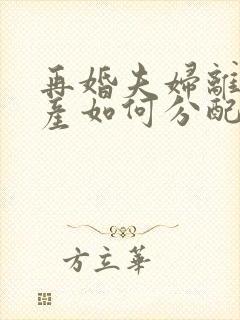 再婚夫婦離
產如何分配
方立華